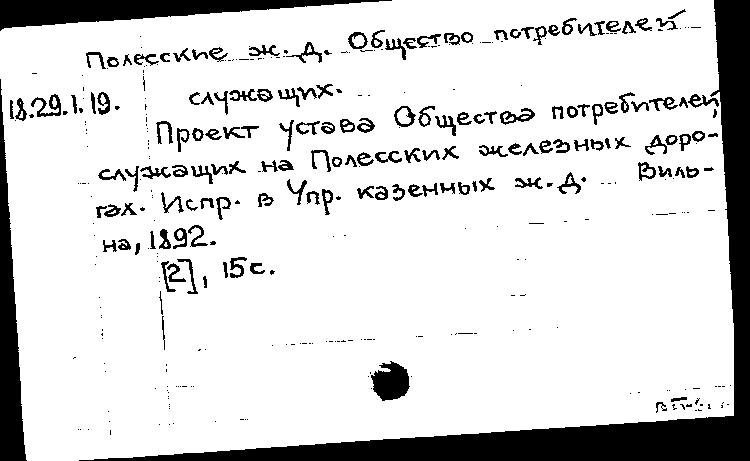 Полесские ж. д. Общество потребителей
18.29.1.19. служащих.
Проект устава Общества потребителей
служащих на Полесских железных доро-
гах. Испр. в Упр. казенных ж. д. Виль-
на, 1892.
[2], 15 с.